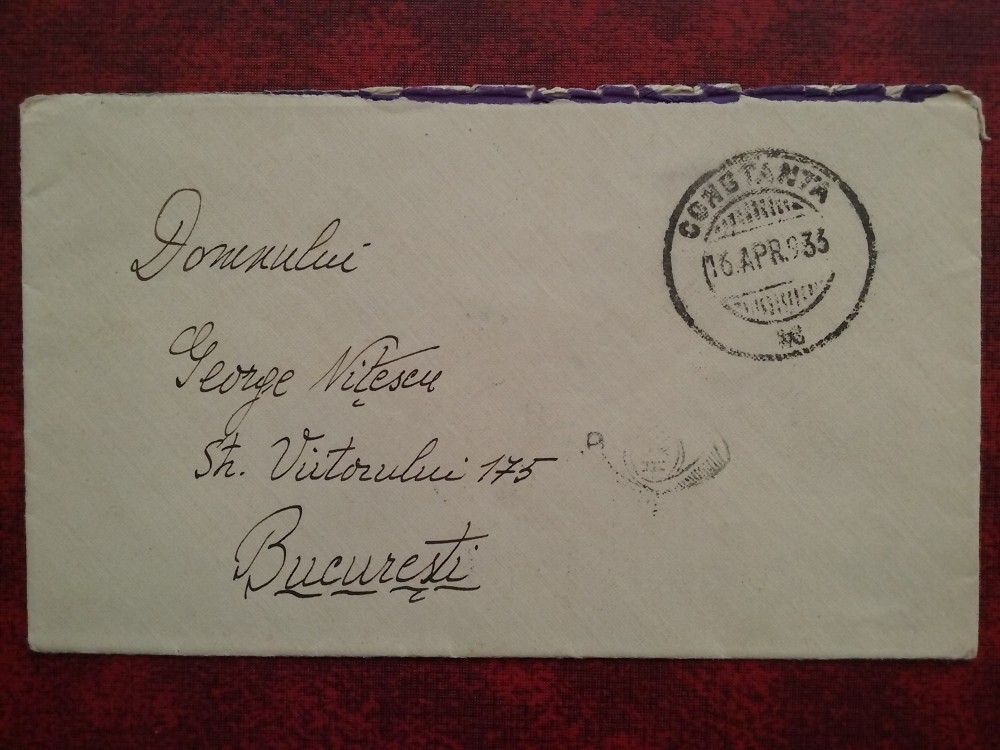 Domnului
George Nițescu
Str. Viitorului 175
București
CONSTANTA
16.APR.933